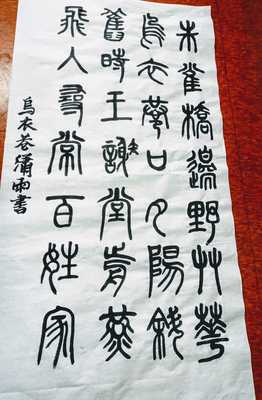 朱雀橋邊野艸華
烏衣巷口夕陽斜
舊時王謝堂前燕
飛入尋常百姓家
烏衣巷 雨書